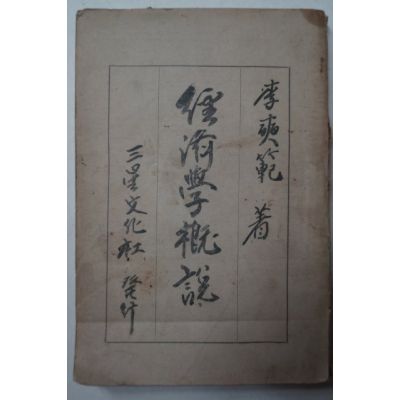 李奭範 著
經濟學槪說
三星文化社 發行